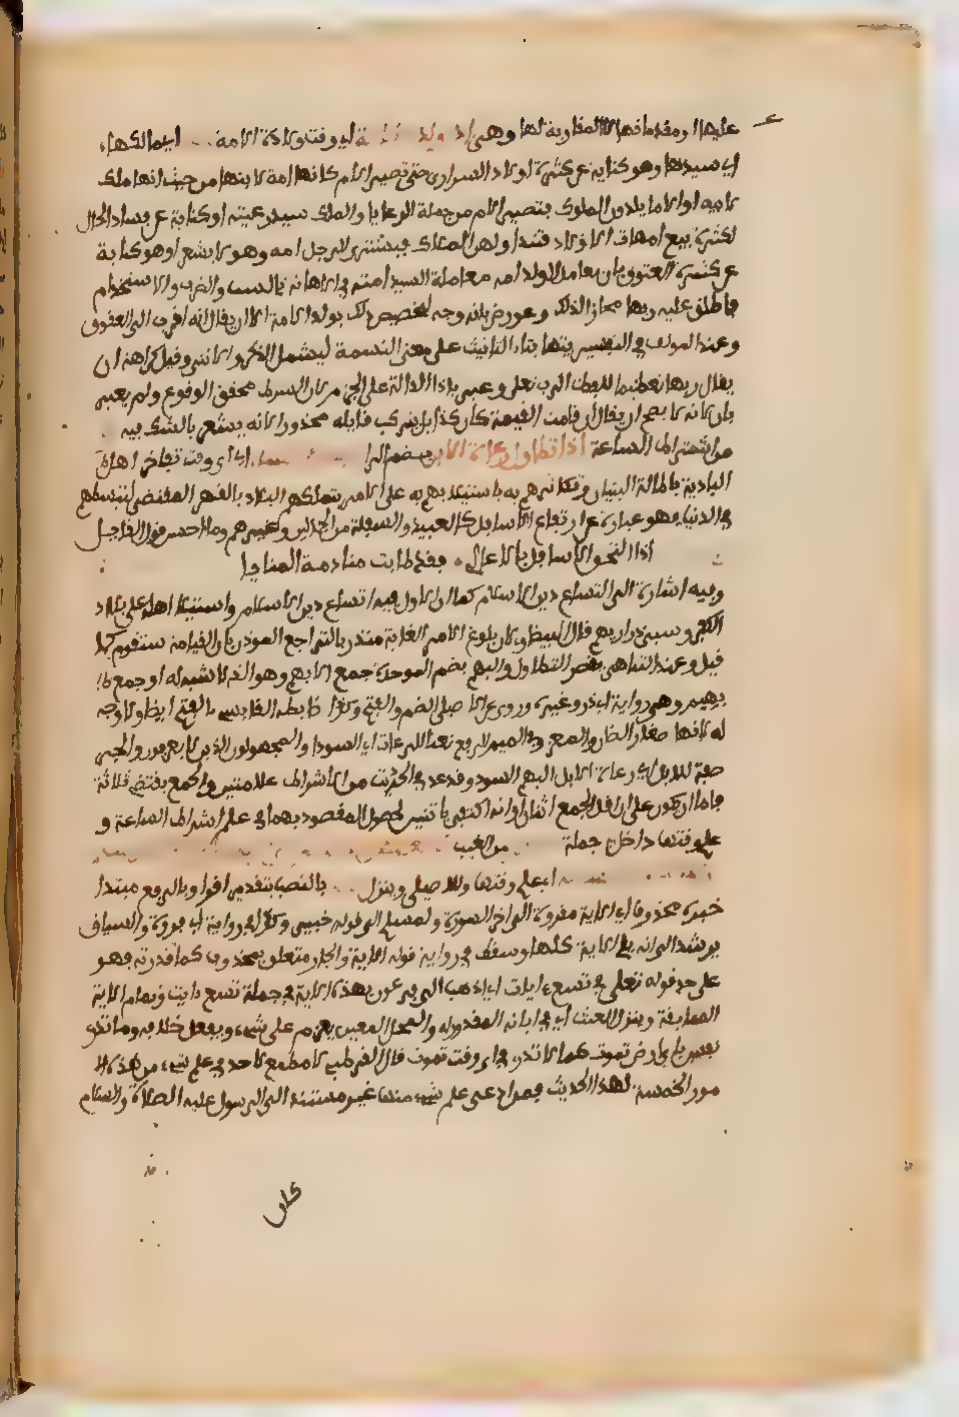 عليها او مقدماتها لا المقاربة لها وهى اذا ولدت الامة اى وقت ولادة الامة ربها اى مالكها
اى سيدها وهو كناية عن كثرة اولاد السرارى حتى تصير الام كانها امة لابنها من حيث انها ملك
لابيه او ان الاما يلدن الملوك فتصير الام من جملة الرعايا والملك سيد رعيته او كناية عن فساد الحال
لكثرة بيع امهات الاولاد فتتداولهن الملاك فيشترى الرجل امه وهو لا يشعر او هو كناية
عن كثرة العقوق بان يعامل الولد امه معاملة السيد امته فى الاهانة بالسب والضرب والاستخدام
فاطلق عليه ربها مجازا لذلك وعورض بانه لا وجه لتخصيص ذلك بولد الامة الا ان يقال انه اقرب الى العقوق
وعند المولف فى التفسير ربتها بتاء التانيث على معنى النسمة ليشمل الذكر والانثى وقيل كراهة ان
يقال ربها تعظيما للفظ الرب تعلى وعبر باذا الدالة على الجزم لان الشرط محقق الوقوع ولم يعبر
بان لانه لا يصح ان يقال ان قامت القيمة كان كذا بل يرتكب قايله محذورا لانه يشعر بالشك فيه
من اشراط الساعة اذا تطاول رعاة الابل بضم الرا اى وقت تفاخر اهل
البادية باطالة البنيان وتكاثرهم به باستيلايهم على الامر بتملكهم البلاد بالقهر المقتضى لتبسطهم
فى الدنيا فهو عبارة عن ارتفاع الاسافل كالعبيد والسفلة من الجمالين وغيرهم وما احسن قول القايل
اذا التحق الاسافل بالاعالى فقد طابت منادمة المنايا
وفيه اشارة الى اتساع دين الاسلام كما ان الاول فيه اتساع دين الاسلام واستيلا اهله على بلاد
الكفر وسبى ذراريهم قال البيضاوى لان بلوغ الامر الغاية منذر بالتراجع الموذن بان القيامة ستقوم كما
قيل وعند التناهى يقصر المتطاول والبهم بضم الموحدة جمع الابهم وهو الذى لا شبه له او جمع
بهيم وهى رواية ابى ذر وغيره وروى عن الاصيلى الضم والفتح وكذا ضبطه القابسى بالفتح ايضا ولا وجه
له لانها صغار الضان والمعز وفى الميم الرفع نعتا للرعاة اى السود او المجهولون الذين لا يعرفون والجر
صفة للابل اى رعاة الابل البهم السود وقد عد فى الحديث من الاشراط علامتين والجمع يقتضى ثلاثة
فاما ان يكون على ان اقل الجمع اثنان او انه اكتفى باثنين لحصول المقصود بهما فى علم اشراط الساعة و
علم وقتها داخل فى جملة من الغيب
اى علم وقتها وللاصيلى وينزل بالنصب بتقدير اقرا وبالرفع مبتدا
خبره محذوف اى الاية مقروة الى اخر السورة ولمسلم الى قوله خبير وكذا فى رواية ابى فروة والسياق
يرشد الى انه تلا الاية كلها وسقط فى رواية قوله الاية والجار متعلق بمحذوف كما قدرته فهو
على حد قوله تعلى فى تسع ايات اى اذهب الى فرعون بهذه الاية فى جملة تسع ايات وتمام الاية
السابقة وينزل الغيث اى فى ابانه المقدر له والمحل المعين يعزم على شىء ويفعل خلافه وما تدرى
نفس باى ارض تموت كما لا تدرى فى اى وقت تموت قال القرطبى لا مطمع لاحد فى علم شىء من هذه الا
مور الخمسة لهذا الحديث فمن ادعى علم شىء منها غير مستند الى الرسول عليه الصلاة والسلام
كان